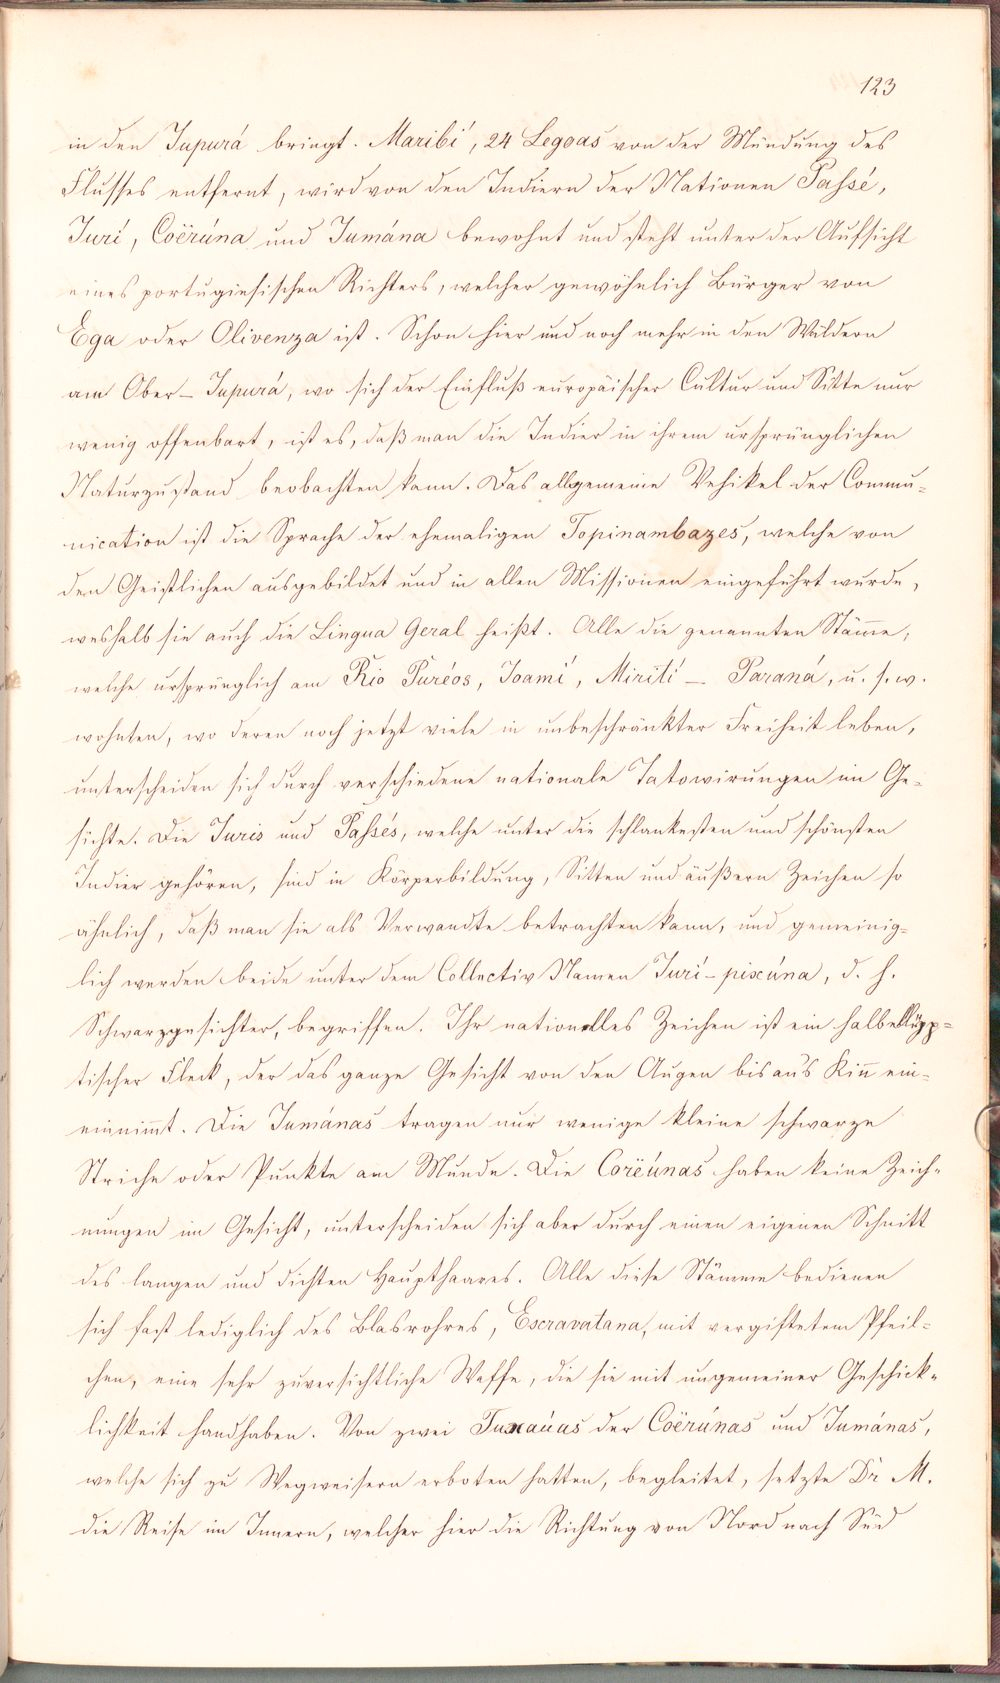 123
in den Iupurá bringt. Maribí, 24 Legoas von der Mündung des
Flusses entfernt, wird von den Indiern der Nationen Passé,
Iurí, Coërúna und Iumána bewohnt und steht unter der Aufsicht
eines portugiesischen Richters, welcher gewöhnlich Bürger von
Ega oder Olivenza ist. Schon hier und noch mehr in den Wäldern
am Ober-Iupurá, wo sich der Einfluß europäischer Cultur und Sitte nur
wenig offenbart, ist es, daß man die Indier in ihrem ursprünglichen
Naturzustand beobachten kann. Das allgemeine Vehikel der Commu-
nication ist die Sprache der ehemaligen Topinambazes, welche von
den Geistlichen ausgebildet und in allen Missionen eingeführt wurde,
weshalb sie auch die Lingua Geral heißt. Alle die genannten Stäm̄e,
welche ursprünglich am Rio Puréos, Ioamí, Mirití-Paraná, u. s. w.
wohnten, wo deren noch jetzt viele in unbeschränkter Freiheit leben,
unterscheiden sich durch verschiedene nationale Tatowirungen im Ge-
sichte. Die Iuris und Passés, welche unter die schlankesten und schönsten
Indier gehören, sind in Körperbildung, Sitten und äußern Zeichen so
ähnlich, daß man sie als Verwandte betrachten kann, und gemeinig-
lich werden beide unter dem Collectiv Namen Iurí-pixúna, d. h.
Schwarzgesichter, begriffen. Ihr nationelles Zeichen ist ein halbellÿpp-
tischer Fleck, der das ganze Gesicht von den Augen bis aus Kin̄ ein-
einnim̄t. Die Iumánas tragen nur wenige kleine schwarze
Striche oder Punkte am Munde. Die Corëúnas haben keine Zeich-
nungen im Gesicht, unterscheiden sich aber durch einen eigenen Schnitt
des langen und dichten Haupthaares. Alle diese Stämme bedienen
sich fast lediglich des Blasrohres, Escravatana, mit vergiftetem Pfeil-
chen, eine sehr zuversichtliche Waffe, die sie mit ungemeiner Geschick-
lichkeit handhaben. Von zwei Tuxaúas der Coërúnas und Iumánas,
welche sich zu Wegweisern erboten hatten, begleitet, setzte Dr M.
die Reise im Innern, welcher hier die Richtung von Nord nach Süd